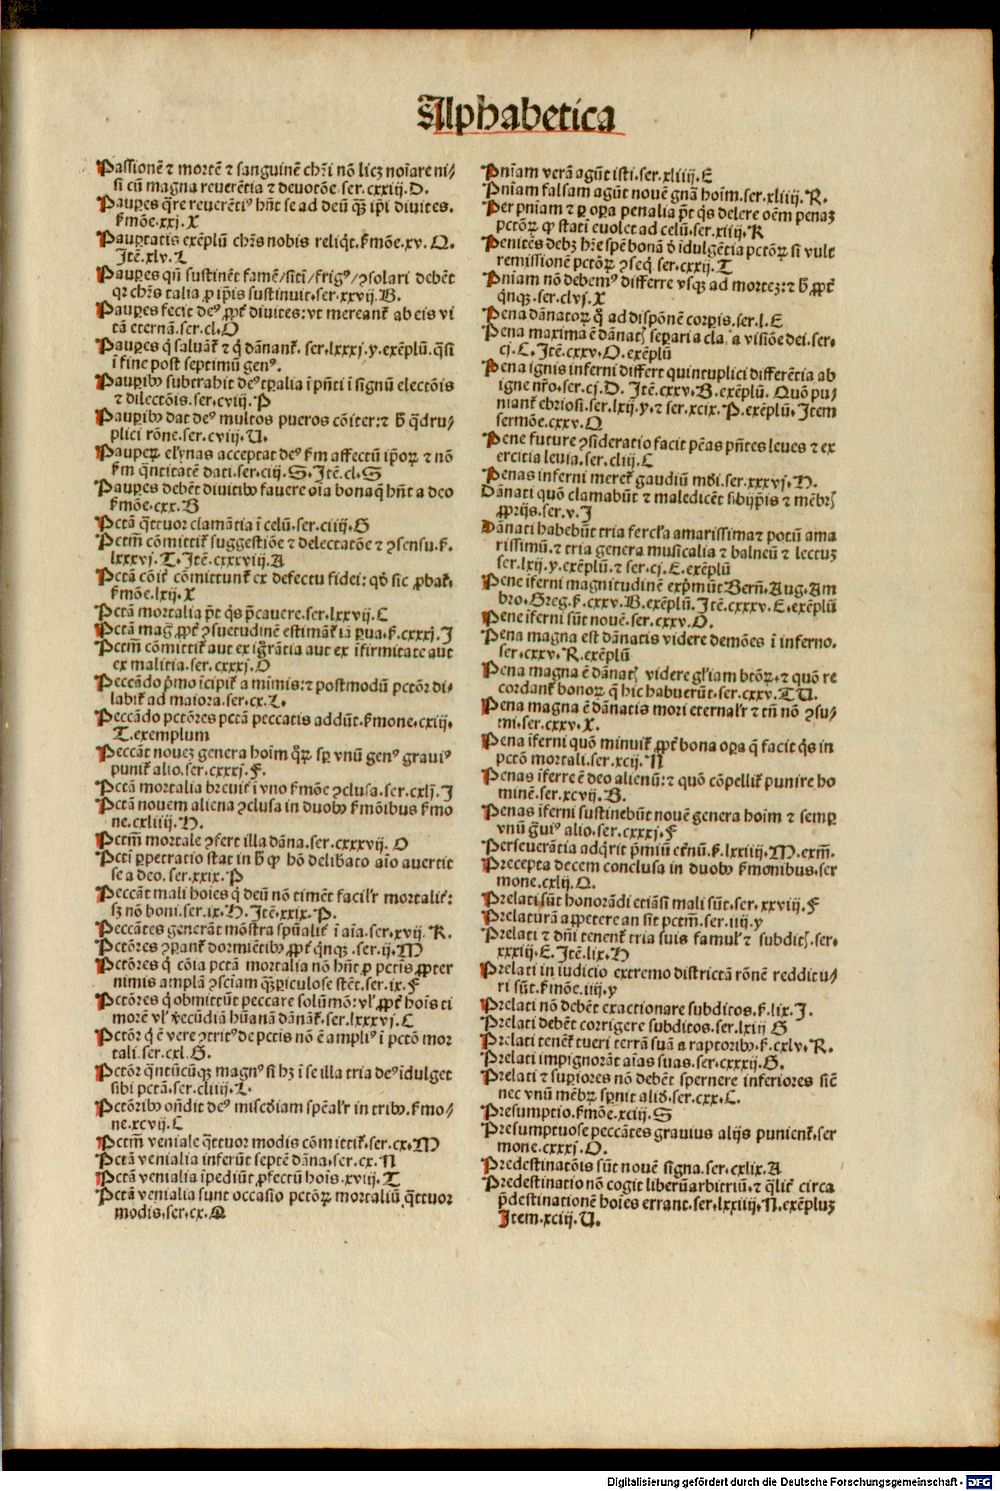 Alphabetica
Passionē ⁊ mortē ⁊ sanguinē chr̄i nō licꝫ noīare ni⸗
si cū magna reuerētia ⁊ deuotōe. ser. cxxiij. D.
Pauꝑes q̄re reuerētiꝰ hn̄t se ad deū qꝫ ip̄i diuites.
ẜmōe. xxj. X
Pauꝑtatis exēplū chr̄s nobis reliq̇t. ẜmōe. xv. Q.
Itē. xlv. L
Pauꝑes qn̄ sustinēt famē/sitī/frigꝰ/ꝯsolari debēt
qꝛ chr̄s talia ꝓ ip̄is sustinuit. ser. xxvij. B.
Pauꝑes fecit deꝰ ꝓpt̄ diuites: vt mereant᷑ ab eis vi
tā eternā. ser. cl. O
Pauꝑes q̇ saluāt᷑ ⁊ q̇ dānant᷑. ser. lxxxj. y. exēplū. q̄si
ī fine post septimū genꝰ.
Pauꝑibꝰ subtrahit deꝰ tꝑalia ī pn̄ti ī signū electōis
⁊ dilectōis. ser. cviij. P
Pauꝑibꝰ dat deꝰ multos pueros cōiter: ⁊ ħ q̄dru⸗
plici rōne. ser. cviij. U.
Pauperꝝ elynas acceptat deꝰ ẜm affectū ip̄oꝝ ⁊ nō
ẜm q̄ntitatē dati. ser. ciij. S. Itē. cl. S
Pauꝑes debēt diuitibꝰ fauere oīa bona q̄ hn̄t a deo
ẜmōe. cxx. B
Pctā q̄ttuor clamātia ī celū. ser. ciiij. G
Pctm̄ cōmittit᷑ suggestiōe ⁊ delectatōe ⁊ ꝯsensu. ẜ.
lxxxvj. T. Itē. cxxxviij. A
Pctā cōit̄ cōmittunt᷑ ex defectu fidei: qđ sic ꝓbat᷑.
ẜmōe. lxij. X
Pctā mortalia pt̄ q̇s p̄cauere. ser. lxxvij. C
Pctā maḡ ꝓpt̄ ꝯsuetudinē estimāt᷑ iā ꝑua. ẜ. cxxxj. I
Pctm̄ cōmittit᷑ aut ex igrātia aut ex īfirmitate aut
ex malitia. ser. cxxxj. O
Peccādo p̄mo īcipit᷑ a mīmis: ⁊ postmodū pctōr di⸗
labit᷑ ad maiora. ser. cx. L.
Peccādo pctōres pctā peccatis addūt. ẜmone. cxij.
T. exemplum
Peccāt nouē genera hoīm q̄ꝝ sꝑ vnū genꝰ grauiꝰ
punit᷑ alio. ser. cxxxj. F.
Pctā mortalia breuit᷑ ī vno ẜmōe ꝯclusa. ser. cxlj. I
Pctā nouem aliena ꝯclusa in duobꝰ ẜmōibus. ẜmo
ne. cxliiij. H.
Pctm̄ mortale ꝯfert illa dāna. ser. cxxxvij. O
Pcti ꝑpetratio stat in ħ ꝙ hō delibato aīo auertit
se a deo. ser. xxix. P
Peccāt mali hoies q̇ deū nō timēt facilr̄ mortalit᷑:
sꝫ nō boni. ser. ix. H. Itē. xxix. P.
Peccātes generāt mōstra spūalit᷑ ī aīa. ser. xvij. R.
Pctōres ꝯꝑant᷑ dormiētibꝰ ꝓpt̄ q̇nqꝫ. ser. ij. M
Pctōres q̇ cōia pctā mortalia nō hn̄t ꝓ pctis ꝓpter
nimis amplā ꝯsciam qꝫꝑiculose stēt. ser. ix. F
Pctōres q̇ obmittūt peccare solū mō: vl̄ ꝓpt̄ hoīs ti
morē vl̄ ꝟecūdiā hūanā dānāt᷑. ser. lxxxvj. C
Pctōr q̇ ē vere ꝯtritꝰ de pctis nō ē ampliꝰ ī pctō mor
tali. ser. cxl. G.
Pctōr q̄ntūcūqꝫ magnꝰ si hꝫ ī se illa tria deꝰ īdulget
sibi pctā. ser. cliiij. L.
Pctōribꝰ on̄dit deꝰ mīscđiam spēalr̄ in tribꝰ. ẜmo⸗
ne. xcvij. C
Pctm̄ veniale q̄ttuor modis cōmittit᷑. ser. cx. M
Pctā venialia inferūt septē dāna. ser. cx. N
Pctā venialia īpediūt ꝓfectū hoīs. xviij. T
Pctā venialia sunt occasio pctōꝝ mortaliū q̄ttuor
modis. ser. cx. M
Pn̄iam verā agūt isti. ser. xliiij. E
Pn̄iam falsam agūt nouē gn̄a hoīm. ser. xliiij. R.
Per pn̄iam ⁊ ꝑ oꝑa penalia pt̄ q̇s delere oēm penaꝫ
pctōꝝ ꝙ stati euolet ad celū. ser. xiiij. R
Penitēs debꝫ hr̄e spē bonā đ īdulgētia pctōꝝ si vult
remissionē pctōꝝ ꝯseq̇. ser. cxxij. T
Pn̄iam nō debemꝰ differre vsqꝫ ad mortēꝫ: ⁊ ħ ꝓpt̄
q̇nqꝫ. ser. clvj. X
Pena dānatoꝝ q̄ ad disponē corꝑis. ser. l. E
Pena maxima ē dānatꝭ seꝑari a clara visiōe dei. ser.
cj. C. Itē. cxxv. O. exēplū
Pena ignis inferni differt quintuplici differētia ab
igne nr̄o. ser. cj. D. Itē. cxxv. B. exēplū. Quō pu⸗
niant᷑ ebriosi. ser. lxij. y. ⁊ ser. xcix. P. exēplū. Item
sermōe. cxxv. Q
Pene future ꝯsideratio facit pēas pn̄tes leues ⁊ ex
ercitia leuia. ser. cliij. C
Penas inferni meret᷑ gaudiū mūdi. ser. xxxvj. H.
Dānati quō clamabūt ⁊ maledicēt sibijp̄is ⁊ mēbrꝭ
ꝓprijs. ser. v. I
Dānati habebūt tria fercl̄a amarissima ⁊ potū ama
rissimū. ⁊ tria genera musicalia ⁊ balneū ⁊ lectuꝫ
ser. lxij. y. exēplū. ⁊ ser. cj. E. exēplū
Pene īferni magnitudinē exp̄mūt Bern̄. Aug. Am
bro. Greg. ẜ. cxxv. B. exēplū. Itē. cxxxv. E. exēplū
Pene īferni sūt nouē. ser. cxxv. O.
Pena magna est dānatis videre demōes ī inferno.
ser. cxxv. R. exēplū
Pena magna ē dānatꝭ videre gl̄iam btōꝝ. ⁊ quō re
cordant᷑ bonoꝝ q̄ hic habuerūt. ser. cxxv. T U.
Pena magna ē dānatis mori eternalr̄ ⁊ tn̄ nō ꝯsu⸗
mi. ser. cxxv. X.
Pena īferni quō minuit᷑ ꝓpt̄ bona oꝑa q̄ facit q̇s in
pctō mortali. ser. xcij. N
Penas īferre ē deo alienū: ⁊ quō cōpellit᷑ punire ho
minē. ser. xcvij. B.
Penas īferni sustinebūt nouē genera hoīm ⁊ semꝑ
vnū ḡuiꝰ alio. ser. cxxxj. F
Perseuerātia adq̇rit p̄miū et̄nū. ẜ. lxxiiij. M. exm̄.
Precepta decem conclusa in duobꝰ ẜmonibus. ser
mone. cxlij. O.
Prelati sūt honorādi etiāsi mali sūt. ser. xxviij. F
Prelaturā appetere an sit pctm̄. ser. iiij. y
Prelati ⁊ dn̄i tenent᷑ tria suis famul̄ ⁊ subditꝭ. ser.
xxxiij. E. Itē. lix. H
Prelati in iudicio extremo districtā rōnē reddituri⸗
ri sūt. ẜmōe. iiij. y
Prelati nō debēt exactionare subditos. ẜ. lix. I.
Prelati debēt corrigere subditos. ser. lxiij G
Prelati tenēt᷑ tueri terrā suā a raptoribꝰ. ẜ. cxlv. R.
Prelati impignorāt aīas suas. ser. cxxxij. G.
Prelati ⁊ suꝑiores nō debēt spernere inferiores sic̄
nec vnū mēbꝝ sꝑnit aliđ. ser. cxx. C.
Presumptio. ẜmōe. xciij. S
Presumptuose peccātes grauius alijs punient᷑. ser
mone. cxxxj. O.
Predestinatōis sūt nouē signa. ser. cxlix. A
Predestinatio nō cogit liberūarbitriū. ⁊ q̄lit᷑ circa
p̄destinationē hoīes errant. ser. lxxiiij. N. exēpluꝫ
Item. xciij. U.
Digitalisierung gefördert durch die Deutsche Forschungsgemeinschaft - DFG